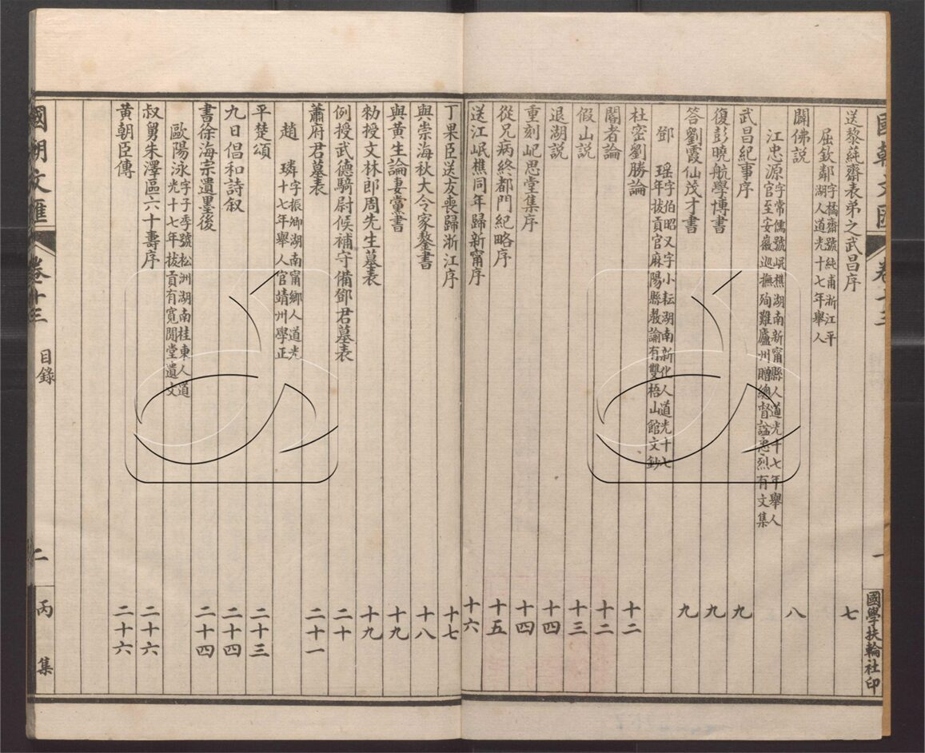 送黎純齋表弟之武昌序 七
屈欽鄰 字橘齋號純甫浙江平湖人道光十七年舉人
闢佛說 八
江忠源 字常孺號岷樵湖南新甯縣人道光十七年舉人官至安徽巡撫殉難廬州贈總督諡忠烈有文集
武昌紀事序 九
復彭曉航學博書 九
答劉霞仙茂才書 九
鄧瑶 字伯昭又字小耘湖南新化人道光十七年拔貢官麻陽縣教諭有雙梧山館文鈔
杜密劉勝論 十二
閹者論 十二
假山說 十三
退湖說 十四
重刻屺思堂集序 十四
從兄病終都門紀略序 十五
送江岷樵同年歸新甯序 十六
國學扶輪社印
丁果臣送友喪歸浙江序 十七
與崇海秋大令家鏊書 十八
與黃生論妻黨書 十九
勅授文林郎周先生墓表 十九
例授武德騎尉候補守備鄧君墓表 二十
蕭府君墓表 二十一
趙璘 字振卿湖南甯鄉人道光十七年舉人官靖州學正
平楚頌 二十三
九日倡和詩叙 二十四
書徐海宗遺墨後 二十四
歐陽泳 字子季號松洲湖南桂東人道光十七年拔貢有寬閒堂遺文
叔舅朱澤區六十壽序 二十六
黄朝臣傳 二十六
國朝文匯 卷十三 目錄 二 丙集